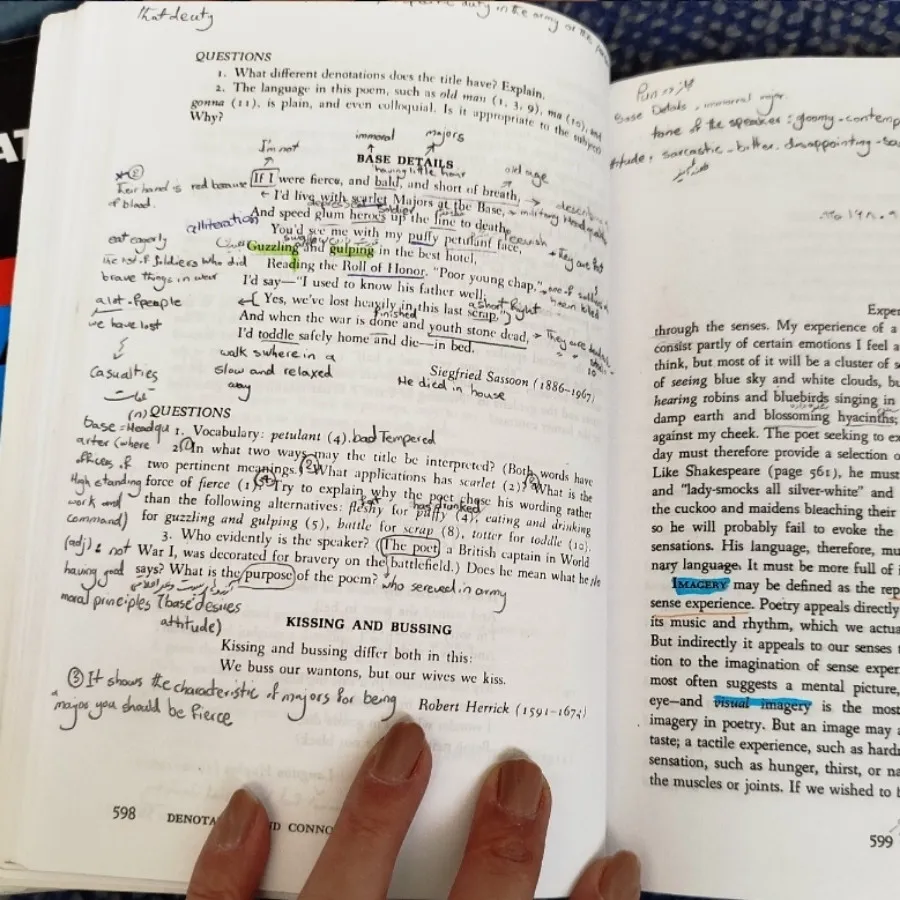 that deuty
duty in the army or the
QUESTIONS
1. What different denotations does the title have? Explain.
2. The language in this poem, such as old man (1, 3, 9), ma (10), and
gonna (11), is plain, and even colloquial. Is it appropriate to the subject?
Why?
I'm not
immoral
majors
BASE DETAILS
having little hair
old age
If I were fierce, and bald, and short of breath,
I'd live with scarlet Majors at the Base,
And speed glum heroes up the line to death.
You'd see me with my puffy petulant face,
Guzzling and gulping in the best hotel,
Reading the Roll of Honor. "Poor young chap,"
I'd say—"I used to know his father well;
Yes, we've lost heavily in this last scrap."
And when the war is done and youth stone dead,
I'd toddle safely home and die—in bed.
Siegfried Sassoon (1886-1967)
their hand is red because
of blood.
alliteration
depressed
soldier
peevish
They are fat
eat eagerly
the list of soldiers who did
brave things in wear
a lot of people
we have lost
casualties
a short fight
finished
walk swhere in a
slow and relaxed
way
He died in house
QUESTIONS
1. Vocabulary: petulant (4). bad Tempered
2. In what two ways may the title be interpreted? (Both words have
two pertinent meanings.) What applications has scarlet (2)? What is the
force of fierce (1)? Try to explain why the poet chose his wording rather
than the following alternatives: fleshy for puffy (4), eating and drinking
for guzzling and gulping (5), battle for scrap (8), totter for toddle (10).
3. Who evidently is the speaker? (The poet, a British captain in World
War I, was decorated for bravery on the battlefield.) Does he mean what he
says? What is the purpose of the poem?
fat
has drunked
who sereved in army
(n)
base = Headqu
arter (where
officers of
High standing
work and
command)
(adj): not
having good
moral principles (base desires
attitude)
KISSING AND BUSSING
Kissing and bussing differ both in this:
We buss our wantons, but our wives we kiss.
Robert Herrick (1591-1674)
③ It shows the characteristic of majors for being
a major you should be fierce
598
DENOTA
ND CONNO
Pun
Base Details = immoral major.
tone of the speaker: gloomy - contemp
itude: sarcastic - bitter - disappointing - sa
Exper
through the senses. My experience of a
consist partly of certain emotions I feel a
think, but most of it will be a cluster of s
of seeing blue sky and white clouds, bu
hearing robins and bluebirds singing in
damp earth and blossoming hyacinths;
against my cheek. The poet seeking to ex
day must therefore provide a selection o
Like Shakespeare (page 561), he must
and "lady-smocks all silver-white" and
the cuckoo and maidens bleaching their
so he will probably fail to evoke the
sensations. His language, therefore, mu
nary language. It must be more full of i
IMAGERY may be defined as the rep
sense experience. Poetry appeals directly
its music and rhythm, which we actua
But indirectly it appeals to our senses t
tion to the imagination of sense exper
most often suggests a mental picture,
eye—and visual imagery is the most
imagery in poetry. But an image may a
taste; a tactile experience, such as hard
sensation, such as hunger, thirst, or na
the muscles or joints. If we wished to b
599
AT